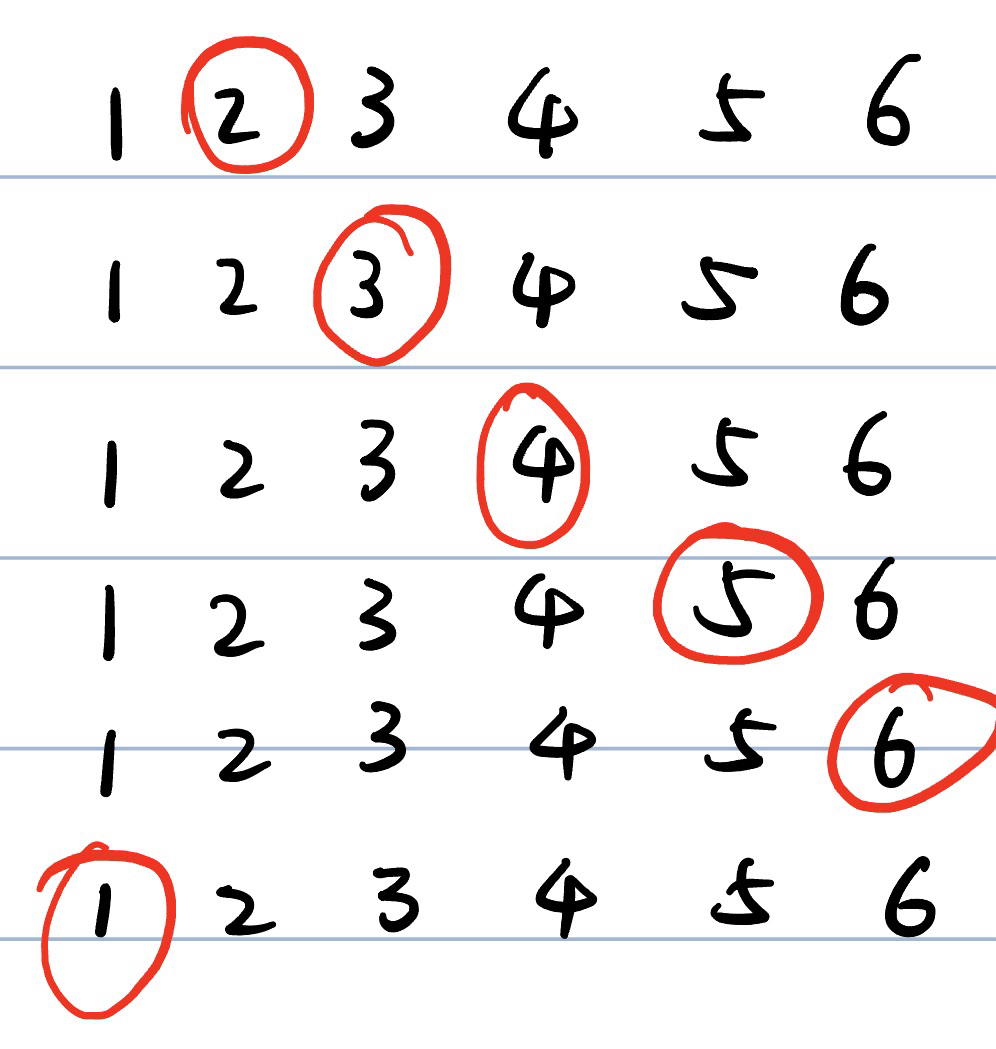 1 2 3 4 5 6
1 2 3 4 5 6
1 2 3 4 5 6
1 2 3 4 5 6
1 2 3 4 5 6
1 2 3 4 5 6